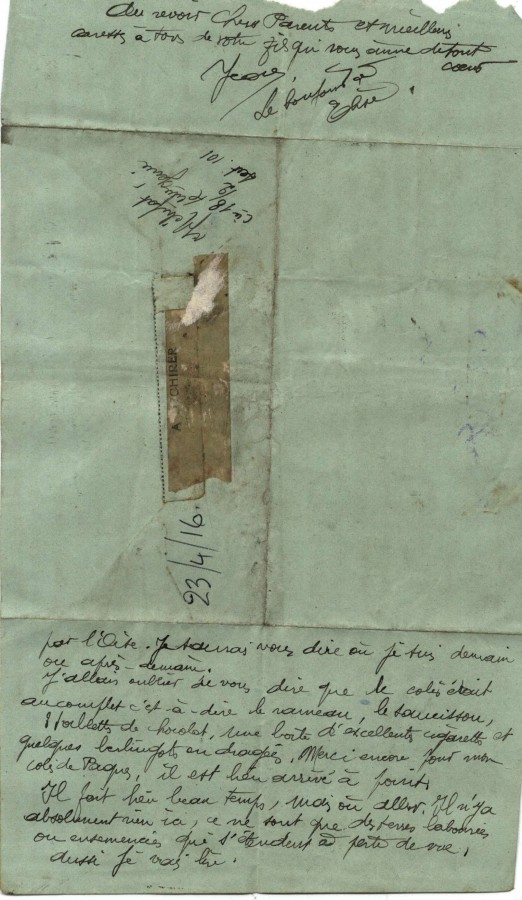 Au revoir Chers Parents et meilleurs
caresses à tous de votre fils qui vous aime de tout
cœur
Le bonjour à
23/4/16.
A CHIRER
par l'Oise. Je saurai vous dire où je suis demain
ou après-demain.
J'allais oublier de vous dire que le colis était
au complet c'est-à-dire le rameau, le saucisson,
tablettes de chocolat, une boîte d'excellents cigarettes et
quelques berlingots en dragées. Merci encore pour mon
colis de Paques, il est bien arrivé à point.
Il fait bien beau temps, mais où aller. Il n'y a
absolument rien ici, ce ne sont que des terres labourées
ou ensemencées qui s'étendent à perte de vue,
aussi je vais lire.